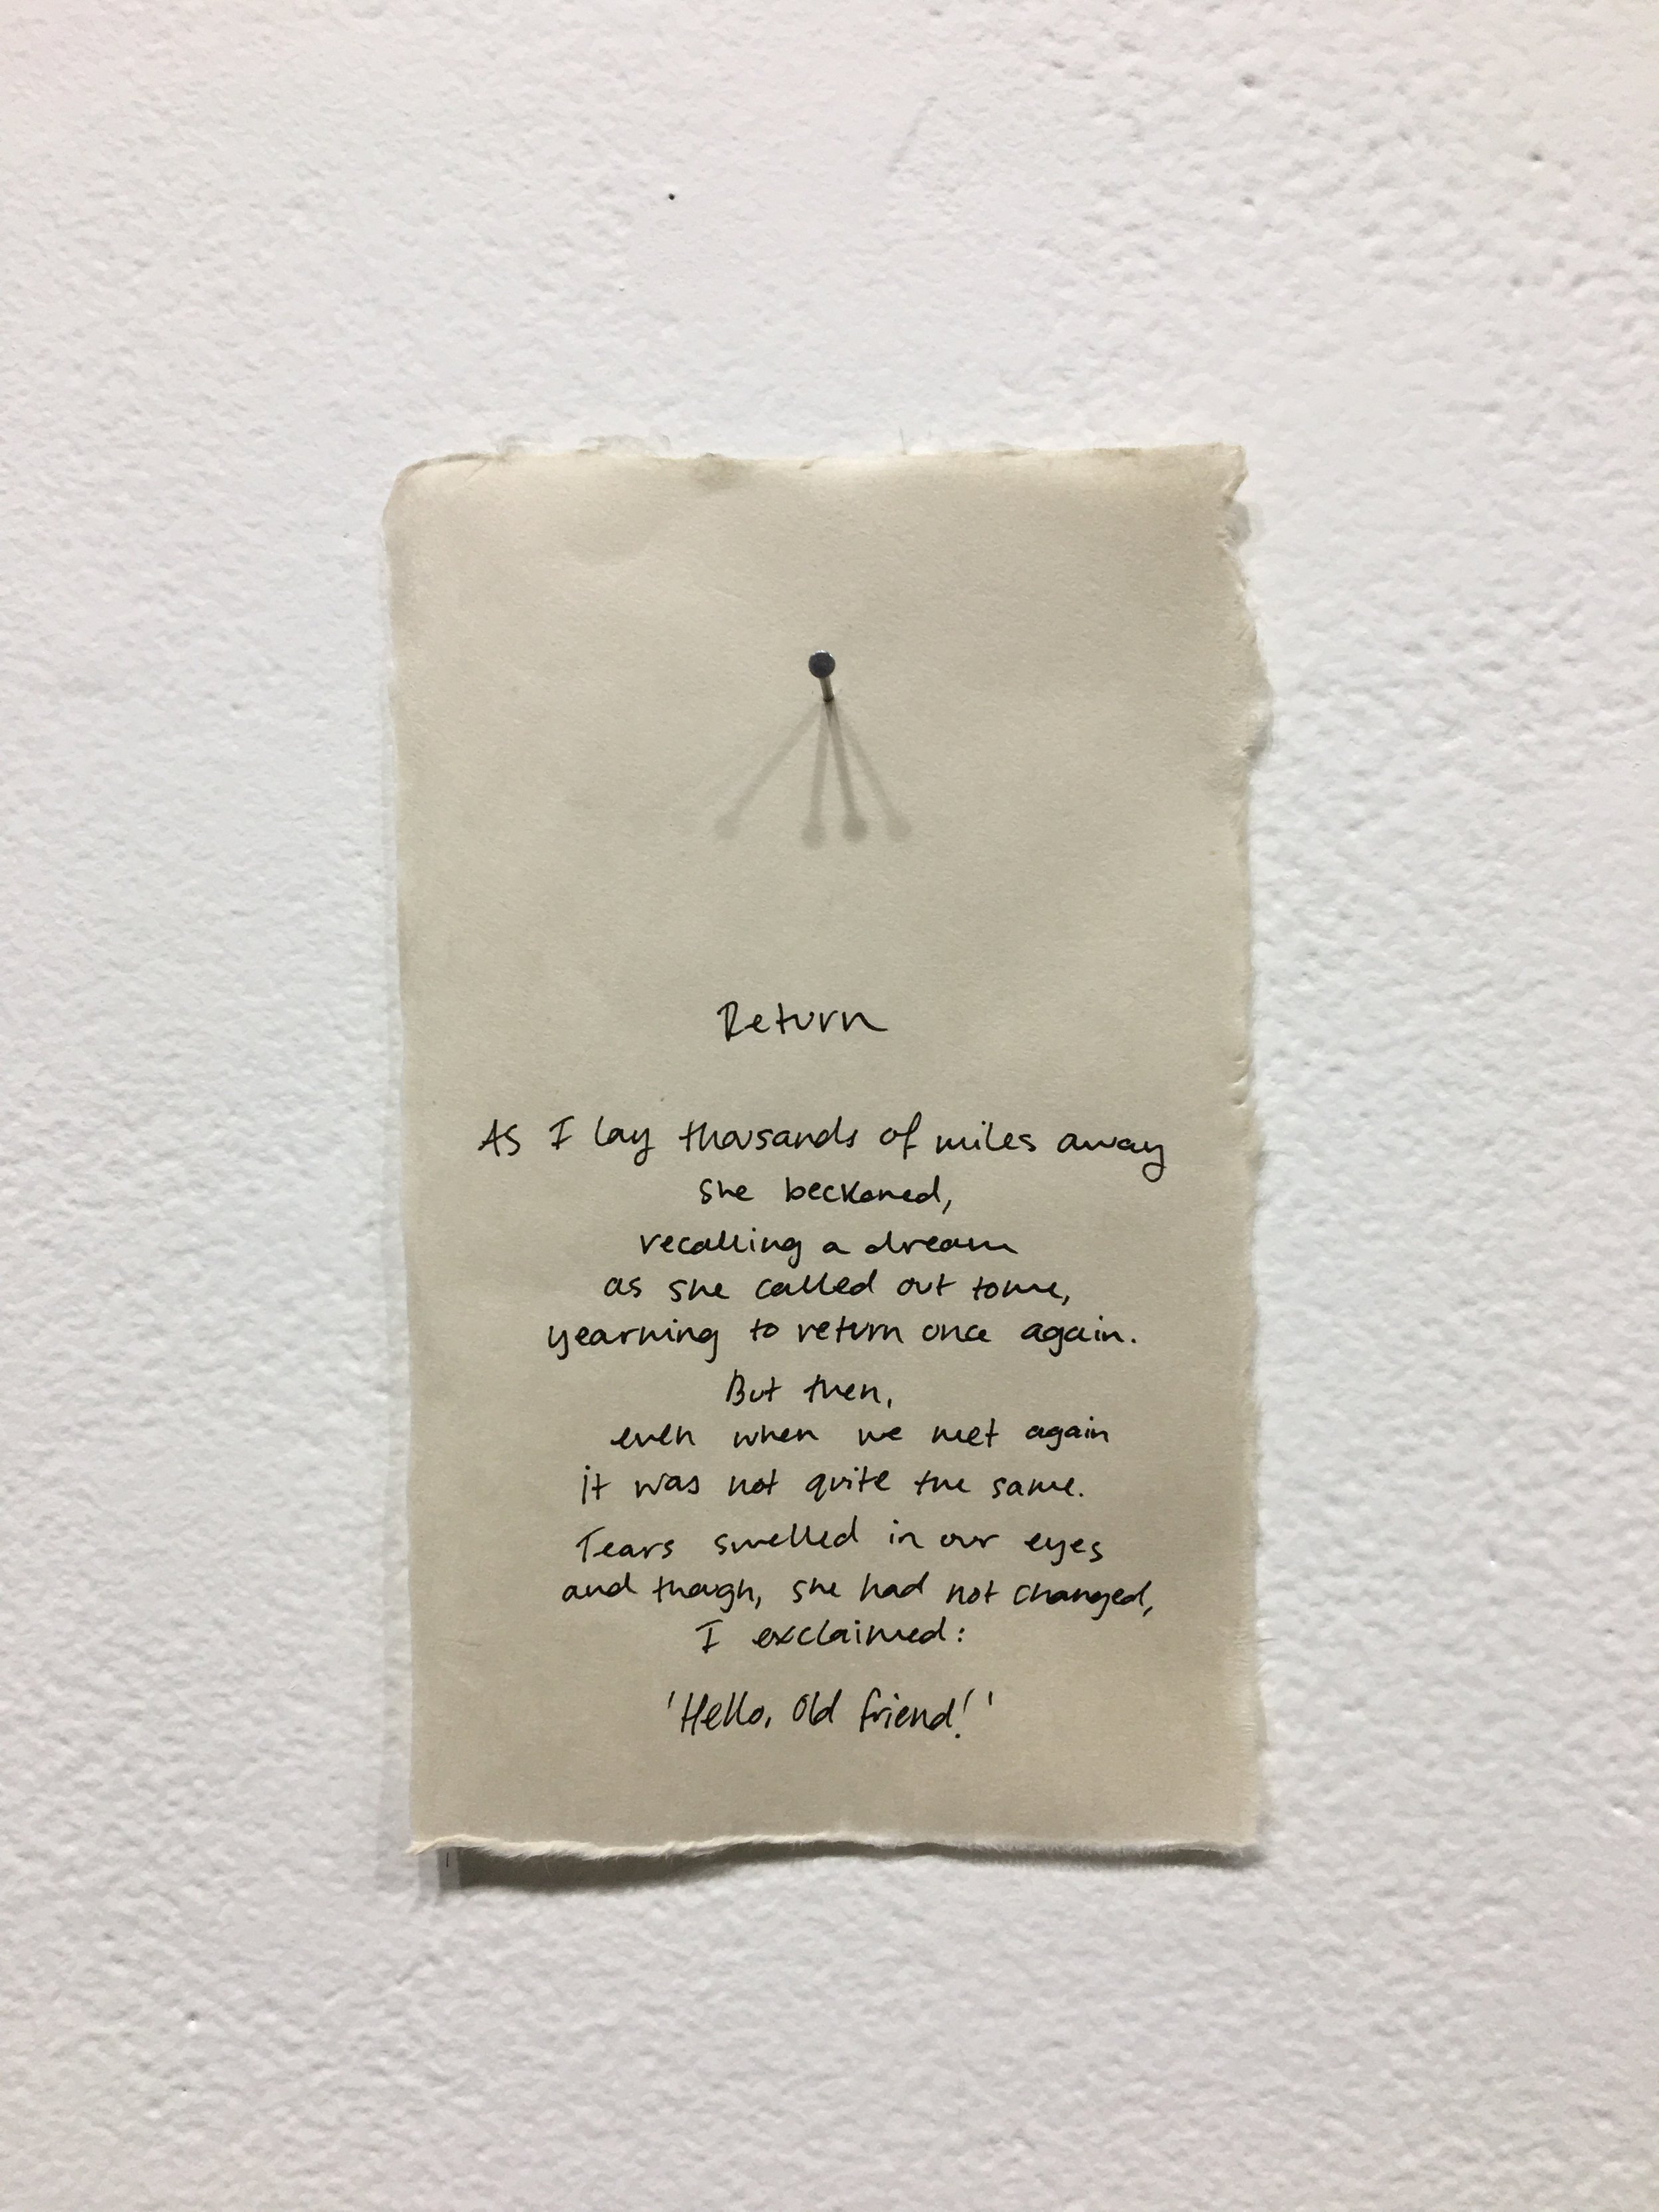 Return
As I lay thousands of miles away
she beckoned,
recalling a dream
as she called out to me,
yearning to return once again.
But then,
even when we met again
it was not quite the same.
Tears swelled in our eyes
and though, she had not changed,
I exclaimed:
'Hello, Old friend!'